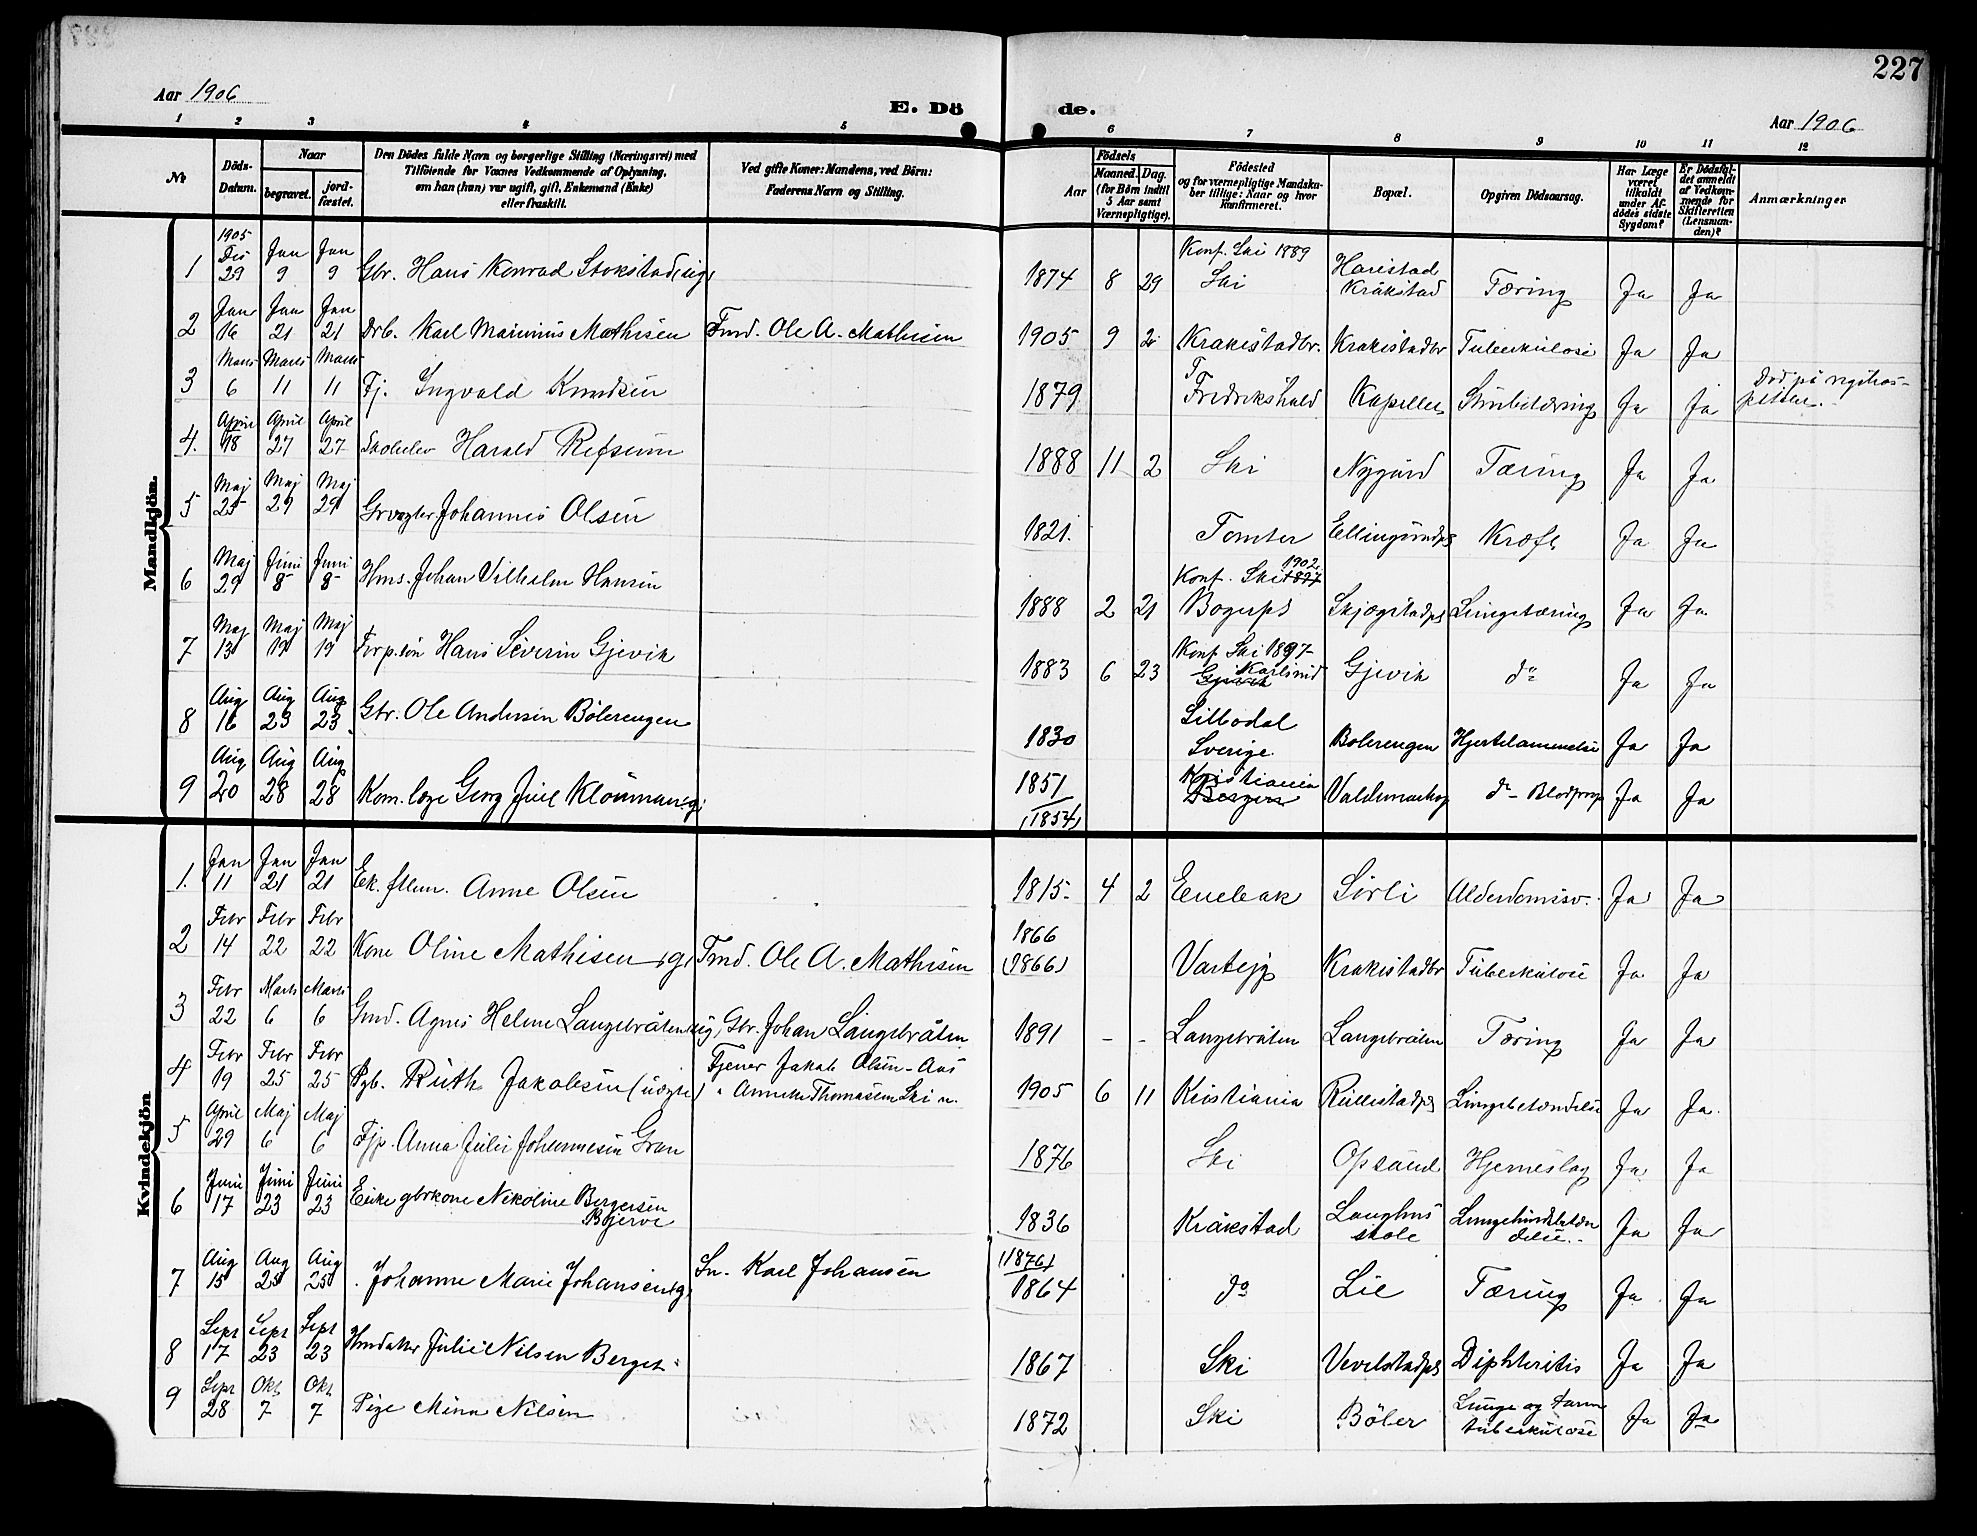 227
Aar 1906
E. Dö
de.
Aar 1906
1 2 3 4 5 6 7 8 9 10 11 12
No
Döds-Datum.
Naar
begravet.
jord-fæstet.
Den Dödes fulde Navn og borgerlige Stilling (Næringsvei) med
Tilföiende for Voxnes Vedkommende af Oplysning,
om han (hun) var ugift, gift, Enkemand (Enke)
eller fraskilt.
Ved gifte Koner: Mandens, ved Börn:
Faderens Navn og Stilling.
Födsels
Aar
Maaned. Dag.
(for Börn indtil
5 Aar samt
Værnepligtige).
Födested
og for værnepligtige Mandska-
ber tillige: Naar og hvor
konfirmeret.
Bopæl.
Opgiven Dödsaarsag.
Har Læge
været
tilkaldt
under Af-
dödes sidste
Sygdom?
Er Dödsfal-
det anmeldt
af Vedkom-
mende for
Skifteretten
(Lensman-
den)?
Anmærkninger
Mandkjön.
1 1905 Des 29 Jan 9 Jan 9 Gbr. Hans Konrad Stokstad (ug) 1874 8 29 Konf. Ski 1889 Ski Haristad Kråkstad Tæring Ja Ja
2 Jan 16 Jan 21 Jan 21 Drb. Karl Marinius Mathisen Fmd. Ole A. Mathisen 1905 9 2 Krakistadbr. Krakistadbr Tuberkulose Ja Ja
3 Marts 6 Marts 11 Marts 11 Fj. Ingvald Knudsen 1879 Fredrikshald Kapellet Ja Ja Död på
4. April 18 April 27 April 27 Skoleelev Harald Refsum 1888 11 2 Ski Nygård Tæring Ja Ja
5 Maj 25 Maj 29 Maj 29 Johannes Olsen 1821. Tomter Kræft Ja Ja
6 Maj 29 Juni 8 Juni 8 Hms. Johan Vilhelm Hansen 1888 2 21 Konf. Ski 1902 1897 Skjægstadpl Lungetæring Ja Ja
7 Maj 13 Maj 19 Maj 19 Forp.søn Hans Severin Gjevik 1883 6 23 Konf Ski 1897 Gjevik Gjevik do Ja Ja
8 Aug 16 Aug 23 Aug 23 Gbr. Ole Andersen Bölerengen 1830 Sillbodal Sverige Bolerengen Hjertelammelse Ja Ja
9 Aug 20 Aug 28 Aug 28 Kom. læge Georg Juel Klouman (g) 1851 (1854) Kristiania Bergen do - Blodprop Ja Ja
Kvindekjön
1. Jan 11 Jan 21 Jan 21 Ek. Anne Olsen 1815 4 2 Enebak Sörli Alderdomssv. Ja Ja
2 Febr 14 Febr 22 Febr 22 Kone Oline Mathisen (g) Fmd. Ole A. Mathisen 1866 (1866) Varteig Krakistadbr Tuberkulose Ja Ja
3 Febr 22 Marts 6 Marts 6 Gmd. Agnes Helene Langebråten (ug) Gbr. Johan Langebråten 1891 - - Langebråten Langebråten Tæring Ja Ja
4 Febr 19 Febr 25 Febr 25 Pgb. Ruth Jakobsen (uægte) Tjener Jakob Olsen - Aas " Annette Thomasen Ski 1905 6 11 Kristiania Rullestadpl Lungebetændelse Ja Ja
5 April 29 Maj 6 Maj 6 Fjp. Anna Julie Johannesen Gran 1876 Ski Opsand Hjerneslag Ja Ja
6 Juni 17 Juni 23 Juni 23 Enke gbrkone Nikoline Bergersen Bjerve 1836 Kråkstad Langhus skole Lungehindebetændelse Ja Ja
7 Aug 15 Aug 25 Aug 25 Johanne Marie Johansen (g) Sn. Karl Johansen (1876) 1864 do Lie Tæring Ja Ja
8 Sept 17 Sept 23 Sept 23 Julie Nilsen Berget 1867 Ski Vevelstadpl Diphteritis Ja Ja
9 Sept 28 Okt 7 Okt 7 Pige Mina Nilsen 1872 Ski Böler Lunge og tarm tuberkulose Ja Ja